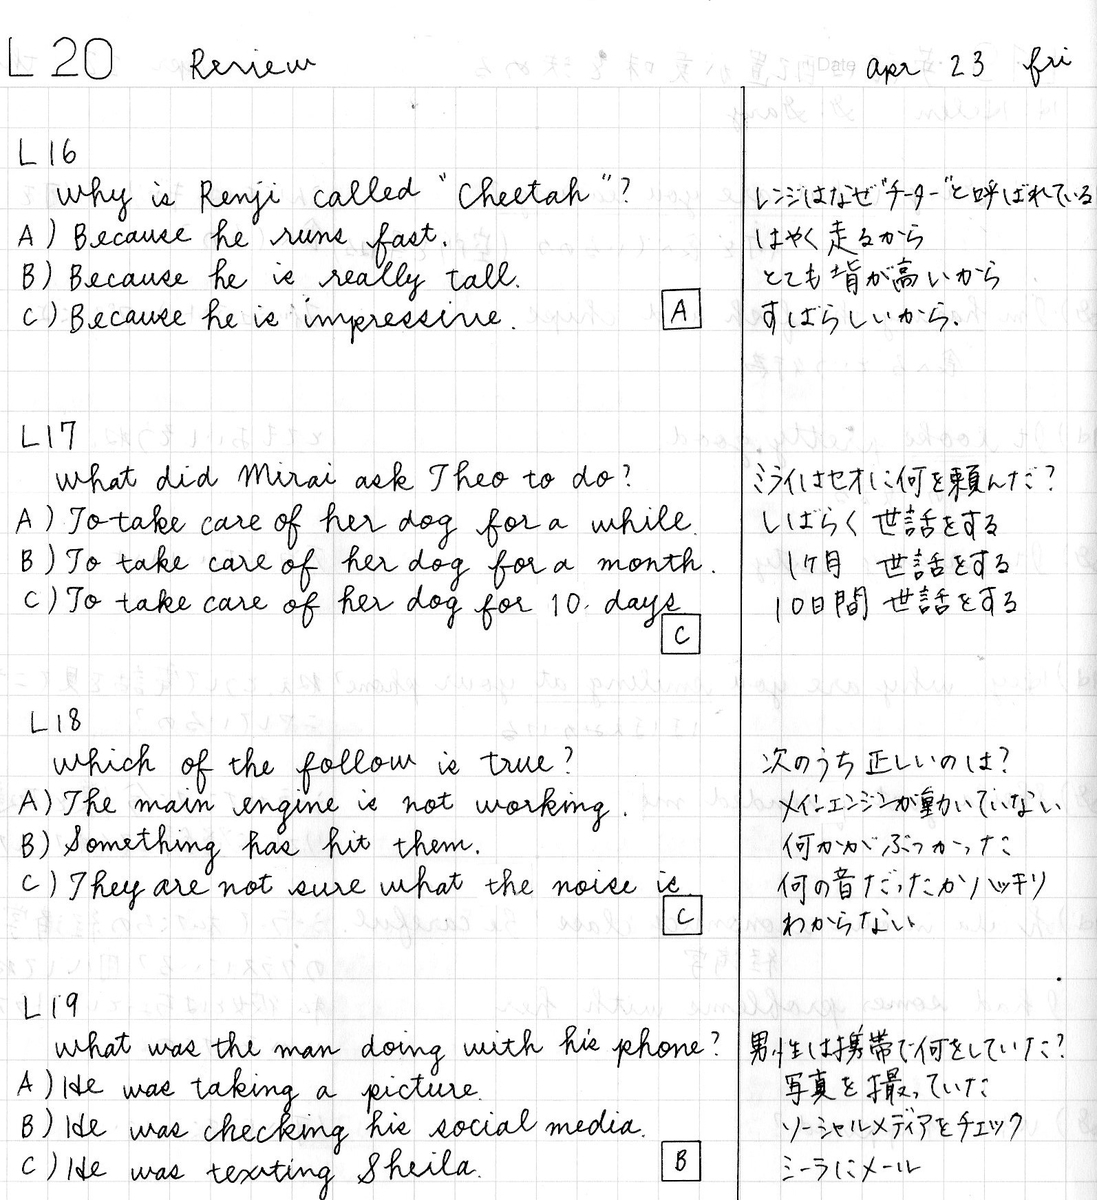 L 20 Review Date apr 23 fri
L16
Why is Renji called "Cheetah"? レンジはなぜ"チーター"と呼ばれている
A) Because he runs fast. はやく走るから
B) Because he is really tall. とても背が高いから
C) Because he is impressive. A すばらしいから.
L17
What did Mirai ask Theo to do? ミライはセオに何を頼んだ?
A) To take care of her dog for a while. しばらく 世話をする
B) To take care of her dog for a month. 1ヶ月 世話をする
C) To take care of her dog for 10 days 10日間 世話をする
C
L18
which of the follow is true? 次のうち正しいのは?
A) The main engine is not working. メインエンジンが動いていない
B) Something has hit them. 何かがぶつかった
C) They are not sure what the noise is 何の音だったかハッキリ
C わからない
L19
what was the man doing with his phone? 男性は携帯で何をしていた?
A) He was taking a picture. 写真を撮っていた
B) He was checking his social media. ソーシャルメディアをチェック
C) He was texting Sheila. B シーラにメール